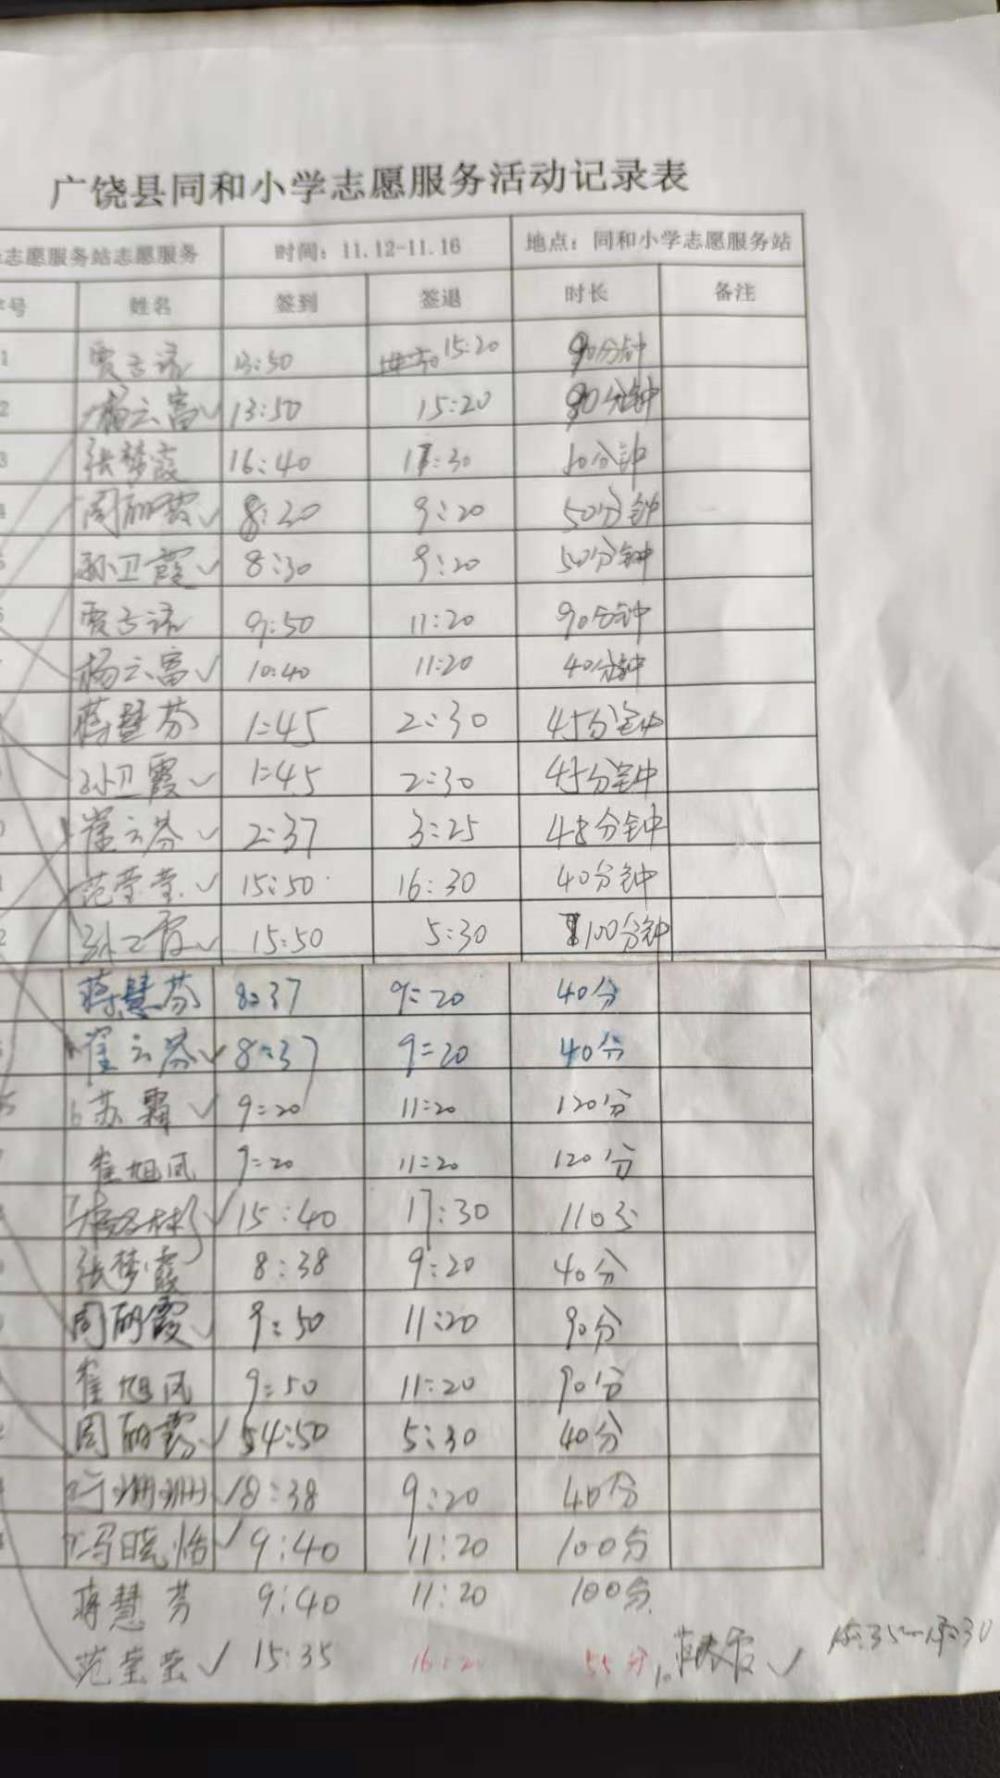 广饶县同和小学志愿服务活动记录表
志愿服务站志愿服务 时间：11.12-11.16 地点：同和小学志愿服务站
号 姓名 签到 签退 时长 备注
1 贾 13:50 15:20 90分钟
2 杨云富✓ 13:50 15:20 90分钟
3 张梦霞 16:40 17:30 分钟
周丽霞✓ 8:30 9:20 50分钟
孙卫霞✓ 8:30 9:20 50分钟
贾 9:50 11:20 90分钟
杨云富✓ 10:40 11:20 40分钟
蒋慧芬 1:45 2:30 45分钟
孙卫霞✓ 1:45 2:30 45分钟
崔云芬✓ 2:37 3:25 48分钟
范莹莹✓ 15:50 16:30 40分钟
2 孙卫霞✓ 15:50 5:30 100分钟
蒋慧芬 8:37 9:20 40分
崔云芬✓ 8:37 9:20 40分
苏霜✓ 9:20 11:20 120分
崔旭凤 9:20 11:20 120分
✓ 15:40 17:30 110分
张梦霞 8:38 9:20 40分
周丽霞✓ 9:50 11:20 90分
崔旭凤 9:50 11:20 90分
周丽霞✓ 4:50 5:30 40分
珊珊✓ 8:38 9:20 40分
冯晓怡✓ 9:40 11:20 100分
蒋慧芬 9:40 11:20 100分
范莹莹✓ 15:35 55分 ✓